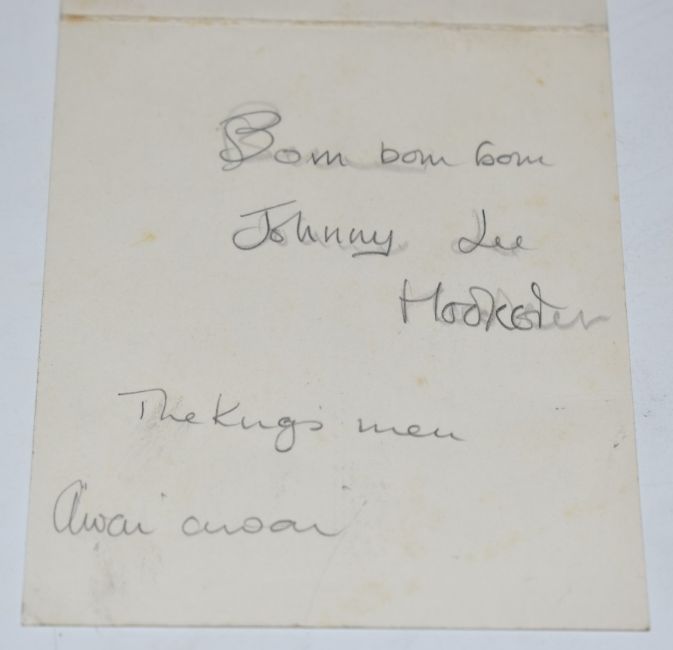 Bom bom bom
Johnny Lee
Hooker
The Kings men
Awai awai